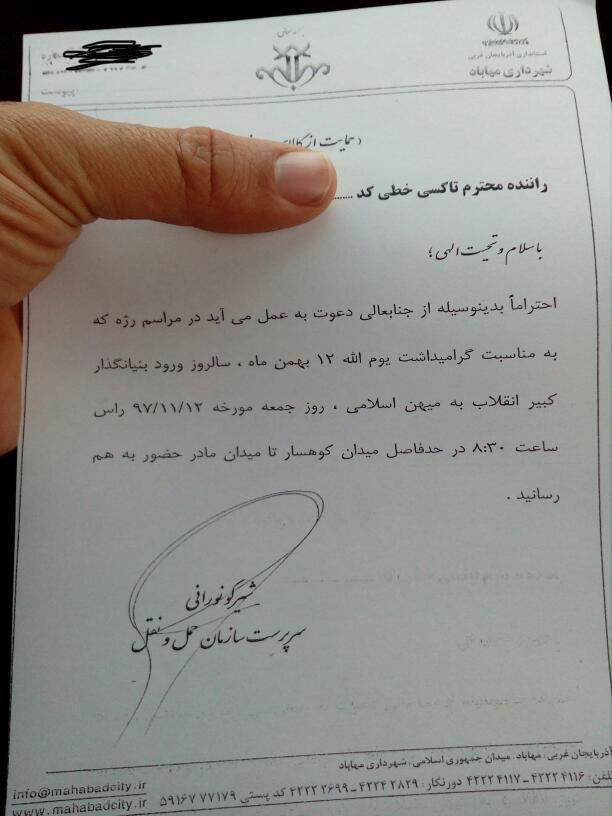 استانداری آذربایجان غربی
شهرداری مهاباد
پیوست:
حمایت از کالای
راننده محترم تاکسی خطی کد ........
باسلام و تحیت الهی؛
احتراماً بدینوسیله از جنابعالی دعوت به عمل می آید در مراسم رژه که
به مناسبت گرامیداشت یوم الله ۱۲ بهمن ماه ، سالروز ورود بنیانگذار
کبیر انقلاب به میهن اسلامی ، روز جمعه مورخه ۹۷/۱۱/۱۲ راس
ساعت ۸:۳۰ در حدفاصل میدان کوهسار تا میدان مادر حضور به هم
رسانید .
شیرگو نورانی
سرپرست سازمان حمل و نقل
آذربایجان غربی، مهاباد، میدان جمهوری اسلامی، شهرداری مهاباد
تلفن: ۴۲۲۲۴۱۱۶ - ۴۲۲۲۴۱۱۷ دورنگار: ۴۲۲۴۲۸۲۹ - ۴۲۲۲۲۶۹۹ کد پستی ۵۹۱۶۷۷۷۱۷۹
info@mahabadcity.ir
www.mahabadcity.ir